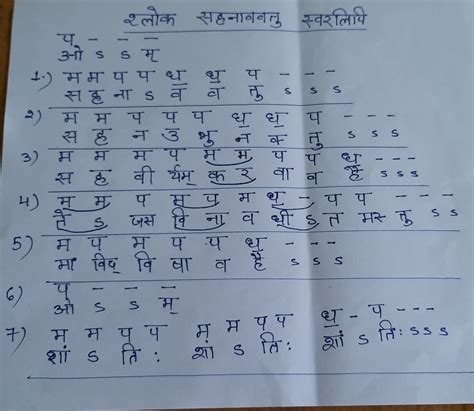 श्लोक सहनाववतु स्वरलिपि
प - - -
ओ ऽ ऽ म्
1.) म म प प ध॒ ध॒ प - - -
स ह ना ऽ व व तु ऽ ऽ ऽ
2) म म प प प ध॒ ध॒ प - - -
स ह न उ भु न क तु ऽ ऽ ऽ
3) म म म प म म प प ध॒ - - -
स ह वी र्यम् क र वा व है ऽ ऽ ऽ
4) म म प म प म ध॒ - प प - - -
ते ऽ जस वि ना व धी ऽ त मस् तु ऽ ऽ ऽ
5) म प म प प ध॒ - - -
मा विद् वि षा व है ऽ ऽ ऽ
6) प - - -
ओ ऽ ऽ म्
7) म म प प म म प प ध॒ - प - - -
शां ऽ ति: शां ऽ ति: शां ऽ ति: ऽ ऽ ऽ